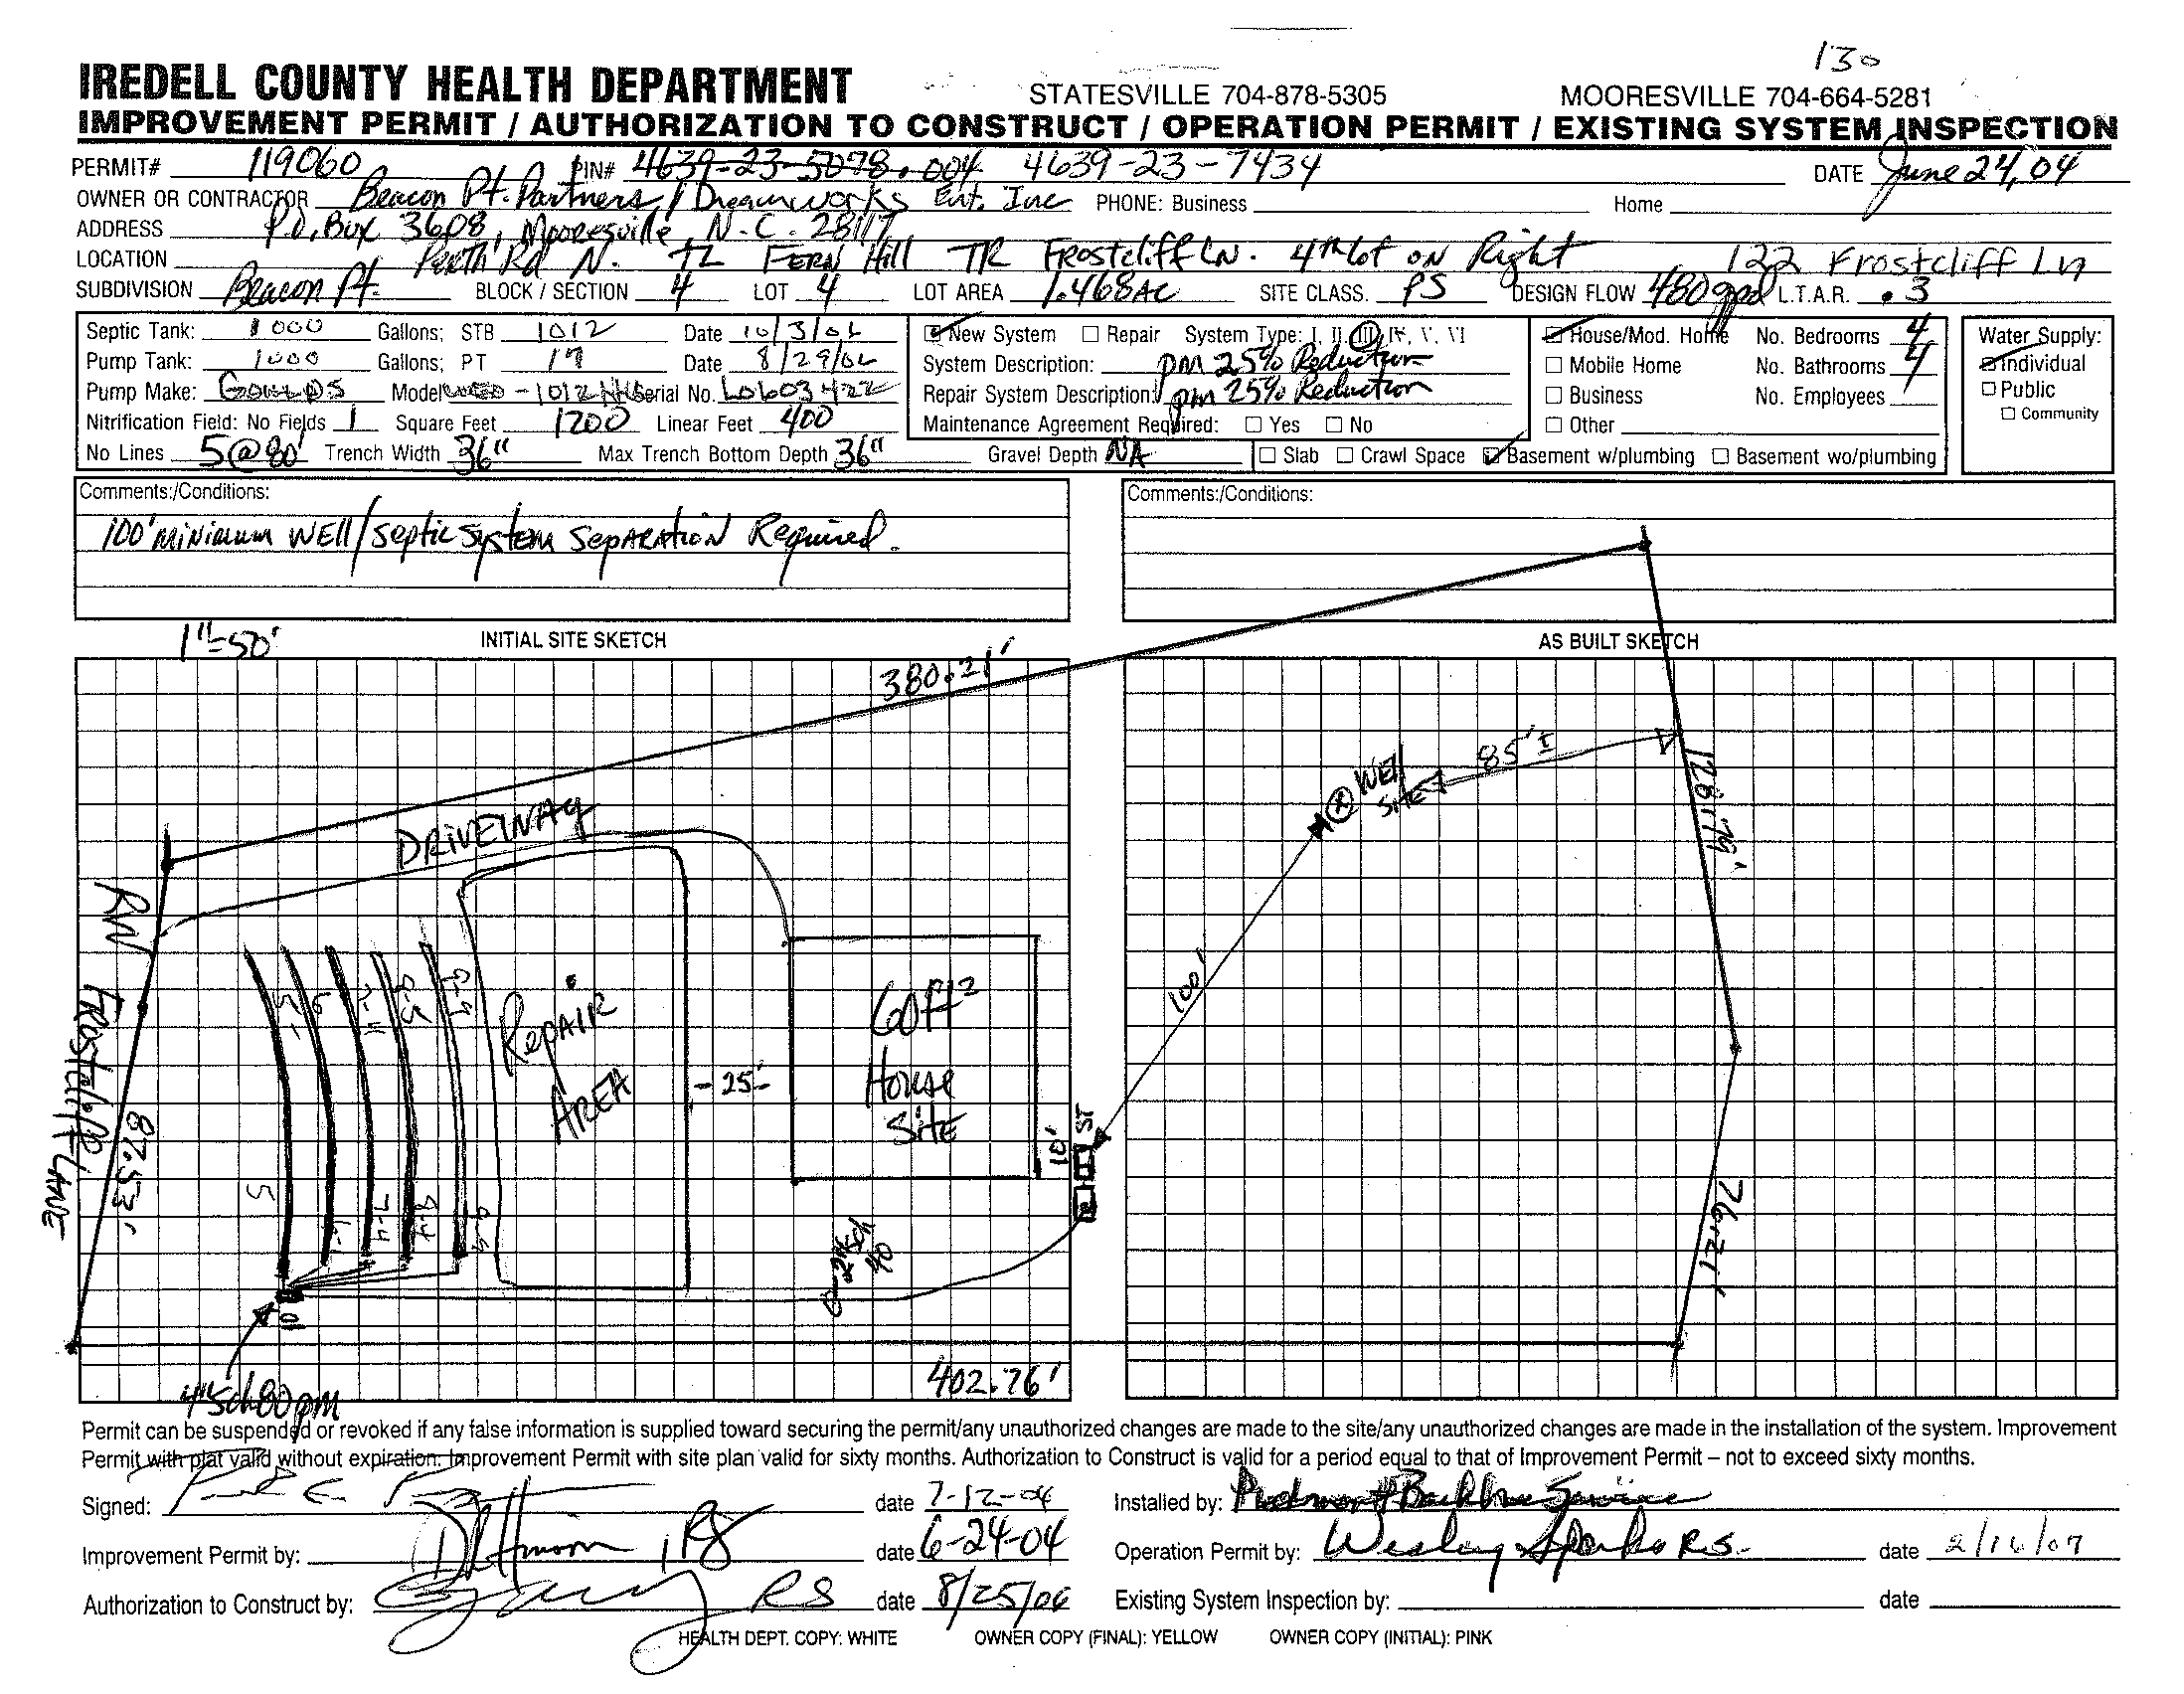 130
IREDELL COUNTY HEALTH DEPARTMENT STATESVILLE 704-878-5305 MOORESVILLE 704-664-5281
IMPROVEMENT PERMIT / AUTHORIZATION TO CONSTRUCT / OPERATION PERMIT / EXISTING SYSTEM INSPECTION
PERMIT# 119060 PIN# 4639-23-5078.004 4639-23-7434 DATE June 24, 04
OWNER OR CONTRACTOR Beacon Pt. Partners / Dreamworks Ent. Inc PHONE: Business Home
ADDRESS P.O. Box 3608, Mooresville, N.C. 28117
LOCATION Perth Rd N. TL Fern Hill TR Frostcliff Ln. 4th lot on Right 122 Frostcliff Ln
SUBDIVISION Beacon Pt. BLOCK / SECTION 4 LOT 4 LOT AREA 1.468 AC SITE CLASS. PS DESIGN FLOW 480 gpd L.T.A.R. .3
Septic Tank: 1000 Gallons; STB 1012 Date 10/3/06 New System Repair System Type: I, II, III, IV, V, VI House/Mod. Home No. Bedrooms 4 Water Supply:
Pump Tank: 1000 Gallons; PT 19 Date 8/29/06 System Description: pm 25% Reduction Mobile Home No. Bathrooms 4 Individual
Pump Make: Goulds Model Serial No. L0603422 Repair System Description: pm 25% Reduction Business No. Employees Public
Nitrification Field: No Fields 1 Square Feet 1200 Linear Feet 400 Maintenance Agreement Required: Yes No Other Community
No Lines 5@80' Trench Width 36" Max Trench Bottom Depth 36" Gravel Depth NA Slab Crawl Space Basement w/plumbing Basement wo/plumbing
Comments:/Conditions: Comments:/Conditions:
100' minimum WEll/septic system separation Required.
1"=50' INITIAL SITE SKETCH AS BUILT SKETCH
380.21'
DRIVEWAY
WEll SITE
85'±
128.79'
RW
Frostcliff LANE
87.53'
Repair AREA
-25'-
60ft² House Site
100'
10'
ST
76.21'
2" sch 40
4" sch 80 pm
402.76'
Permit can be suspended or revoked if any false information is supplied toward securing the permit/any unauthorized changes are made to the site/any unauthorized changes are made in the installation of the system. Improvement
Permit with plat valid without expiration: Improvement Permit with site plan valid for sixty months. Authorization to Construct is valid for a period equal to that of Improvement Permit – not to exceed sixty months.
Signed: date 7-12-04 Installed by: Piedmont Backhoe Service
Improvement Permit by: , RS date 6-24-04 Operation Permit by: Wesley Sparks R.S. date 2/16/07
Authorization to Construct by: RS date 8/25/06 Existing System Inspection by: date
HEALTH DEPT. COPY: WHITE OWNER COPY (FINAL): YELLOW OWNER COPY (INITIAL): PINK